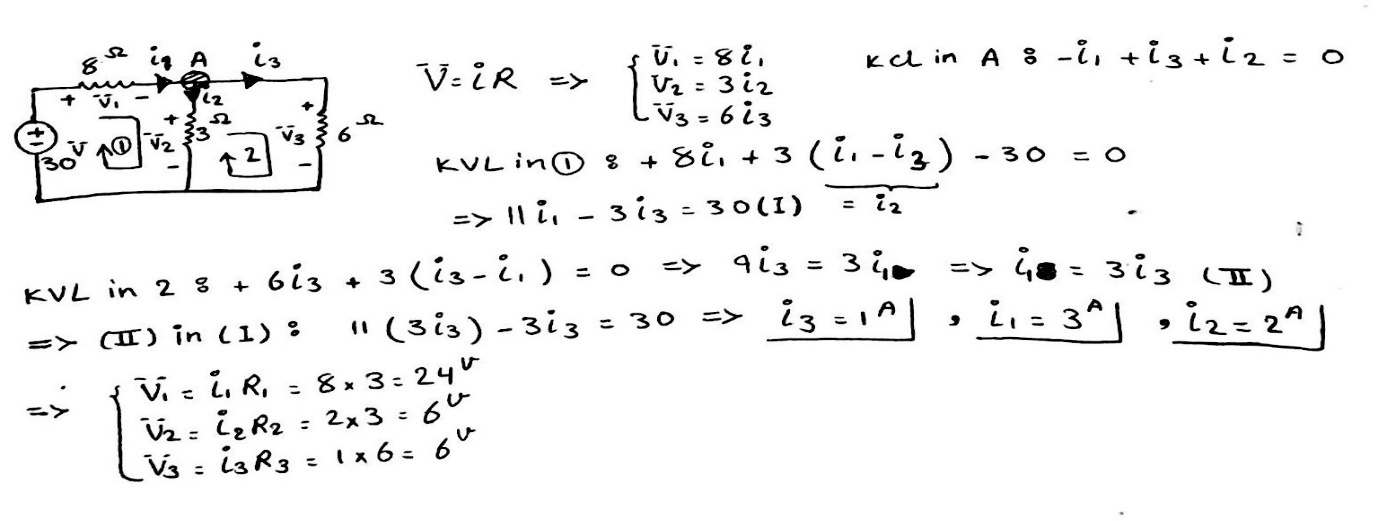 8Ω i1 A i3
+ V̄1 - i2
+ 3Ω + 6Ω
30V ① V̄2 2 V̄3
- -
V̄=iR => { V̄1 = 8i1
V̄2 = 3i2
V̄3 = 6i3
KCL in A : -i1 + i3 + i2 = 0
KVL in ① : + 8i1 + 3 (i1 - i3) - 30 = 0
=> 11i1 - 3i3 = 30 (I) = i2
KVL in 2 : + 6i3 + 3 (i3 - i1) = 0 => 9i3 = 3i1 => i1 = 3i3 (II)
=> (II) in (I) : 11 (3i3) - 3i3 = 30 => i3 = 1A , i1 = 3A , i2 = 2A
=> { V̄1 = i1 R1 = 8 × 3 = 24v
V̄2 = i2 R2 = 2×3 = 6v
V̄3 = i3 R3 = 1 × 6 = 6v